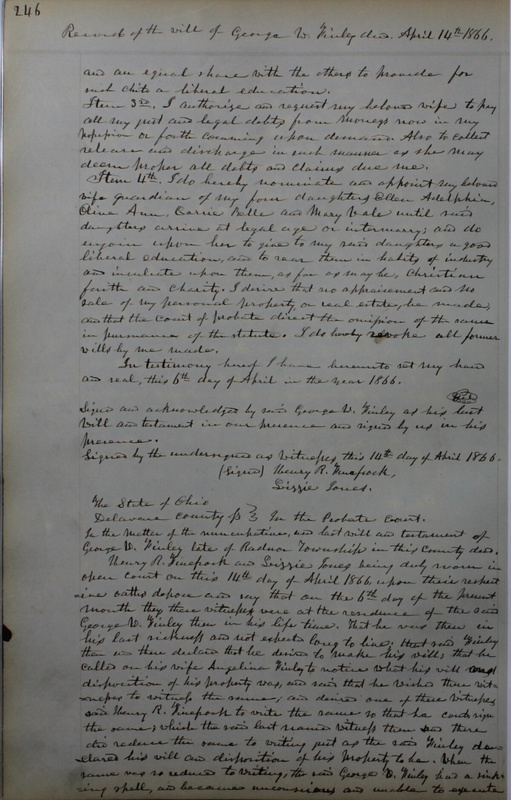 246
Record of the will of George W. Finley decd. April 14th 1866.
and an equal share with the others to provide for
such child a liberal education.
Item 3rd. I authorize and request my beloved wife to pay
all my just and legal debts from moneys now in my
possession or forth comming upon demand. Also to collect
release and discharge in such manner as she may
deem proper all debts and claims due me.
Item 4th. I do hereby nominate and appoint my beloved
wife guardian of my four daughters Ellen Adelphia,
Olive Ann, Carrie Belle and Mary Vale until said
daughters arrive at legal age or intermarry; and do
enjoin upon her to give to my said daughters a good
liberal education, and to rear them in habits of industry
and inculcate upon them, as far as may be, Christian
faith and Charity. I desire that no appraisement and no
sale of my personal property, or real estate, be made,
and that the Court of probate direct the omission of the same
in pursuance of the statute. I do hereby revoke all former
wills by me made.
In testimony hereof I have hereunto set my hand
and seal, this 6th day of April in the year 1866.
Seal
Signed and acknowledged by said George W. Finley as his last
Will and testament in our presence and signed by us in his
presence.
Signed by the undersigned as Witnesses, this 14th day of April 1866
(Signed) Henry R.
Lizzie Jones.
The State of Ohio
Delaware County ss In the Probate Court.
In the Matter of the nuncupative, and last will and testament of
George W. Finley late of Radnor Township in this County decd.
Henry R. and Lizzie Jones being duly sworn in
open court on this 14th day of April 1866 upon their respect
ive oaths depose and say that on the 6th day of the present
month they these witnesses were at the residence of the said
George W. Finley then in his life time. That he was then in
his last sickness and not expected long to live; that said Finley
then and there declared that he desired to make his will; that he
called on his wife Angelina Finley to notice what his will and
disposition of his property was, and said that he wished these wit-
nesses to witness the same, and desired one of these witnesses
said Henry R. to write the same so that he could sign
the same; which the said last named witness then and there
did reduce the same to writing just as the said Finley de-
clared his will and disposition of his property to be. When the
same was so reduced to writing, the said George W. Finley had a sink-
ing spell, and became unconscious and unable to execute